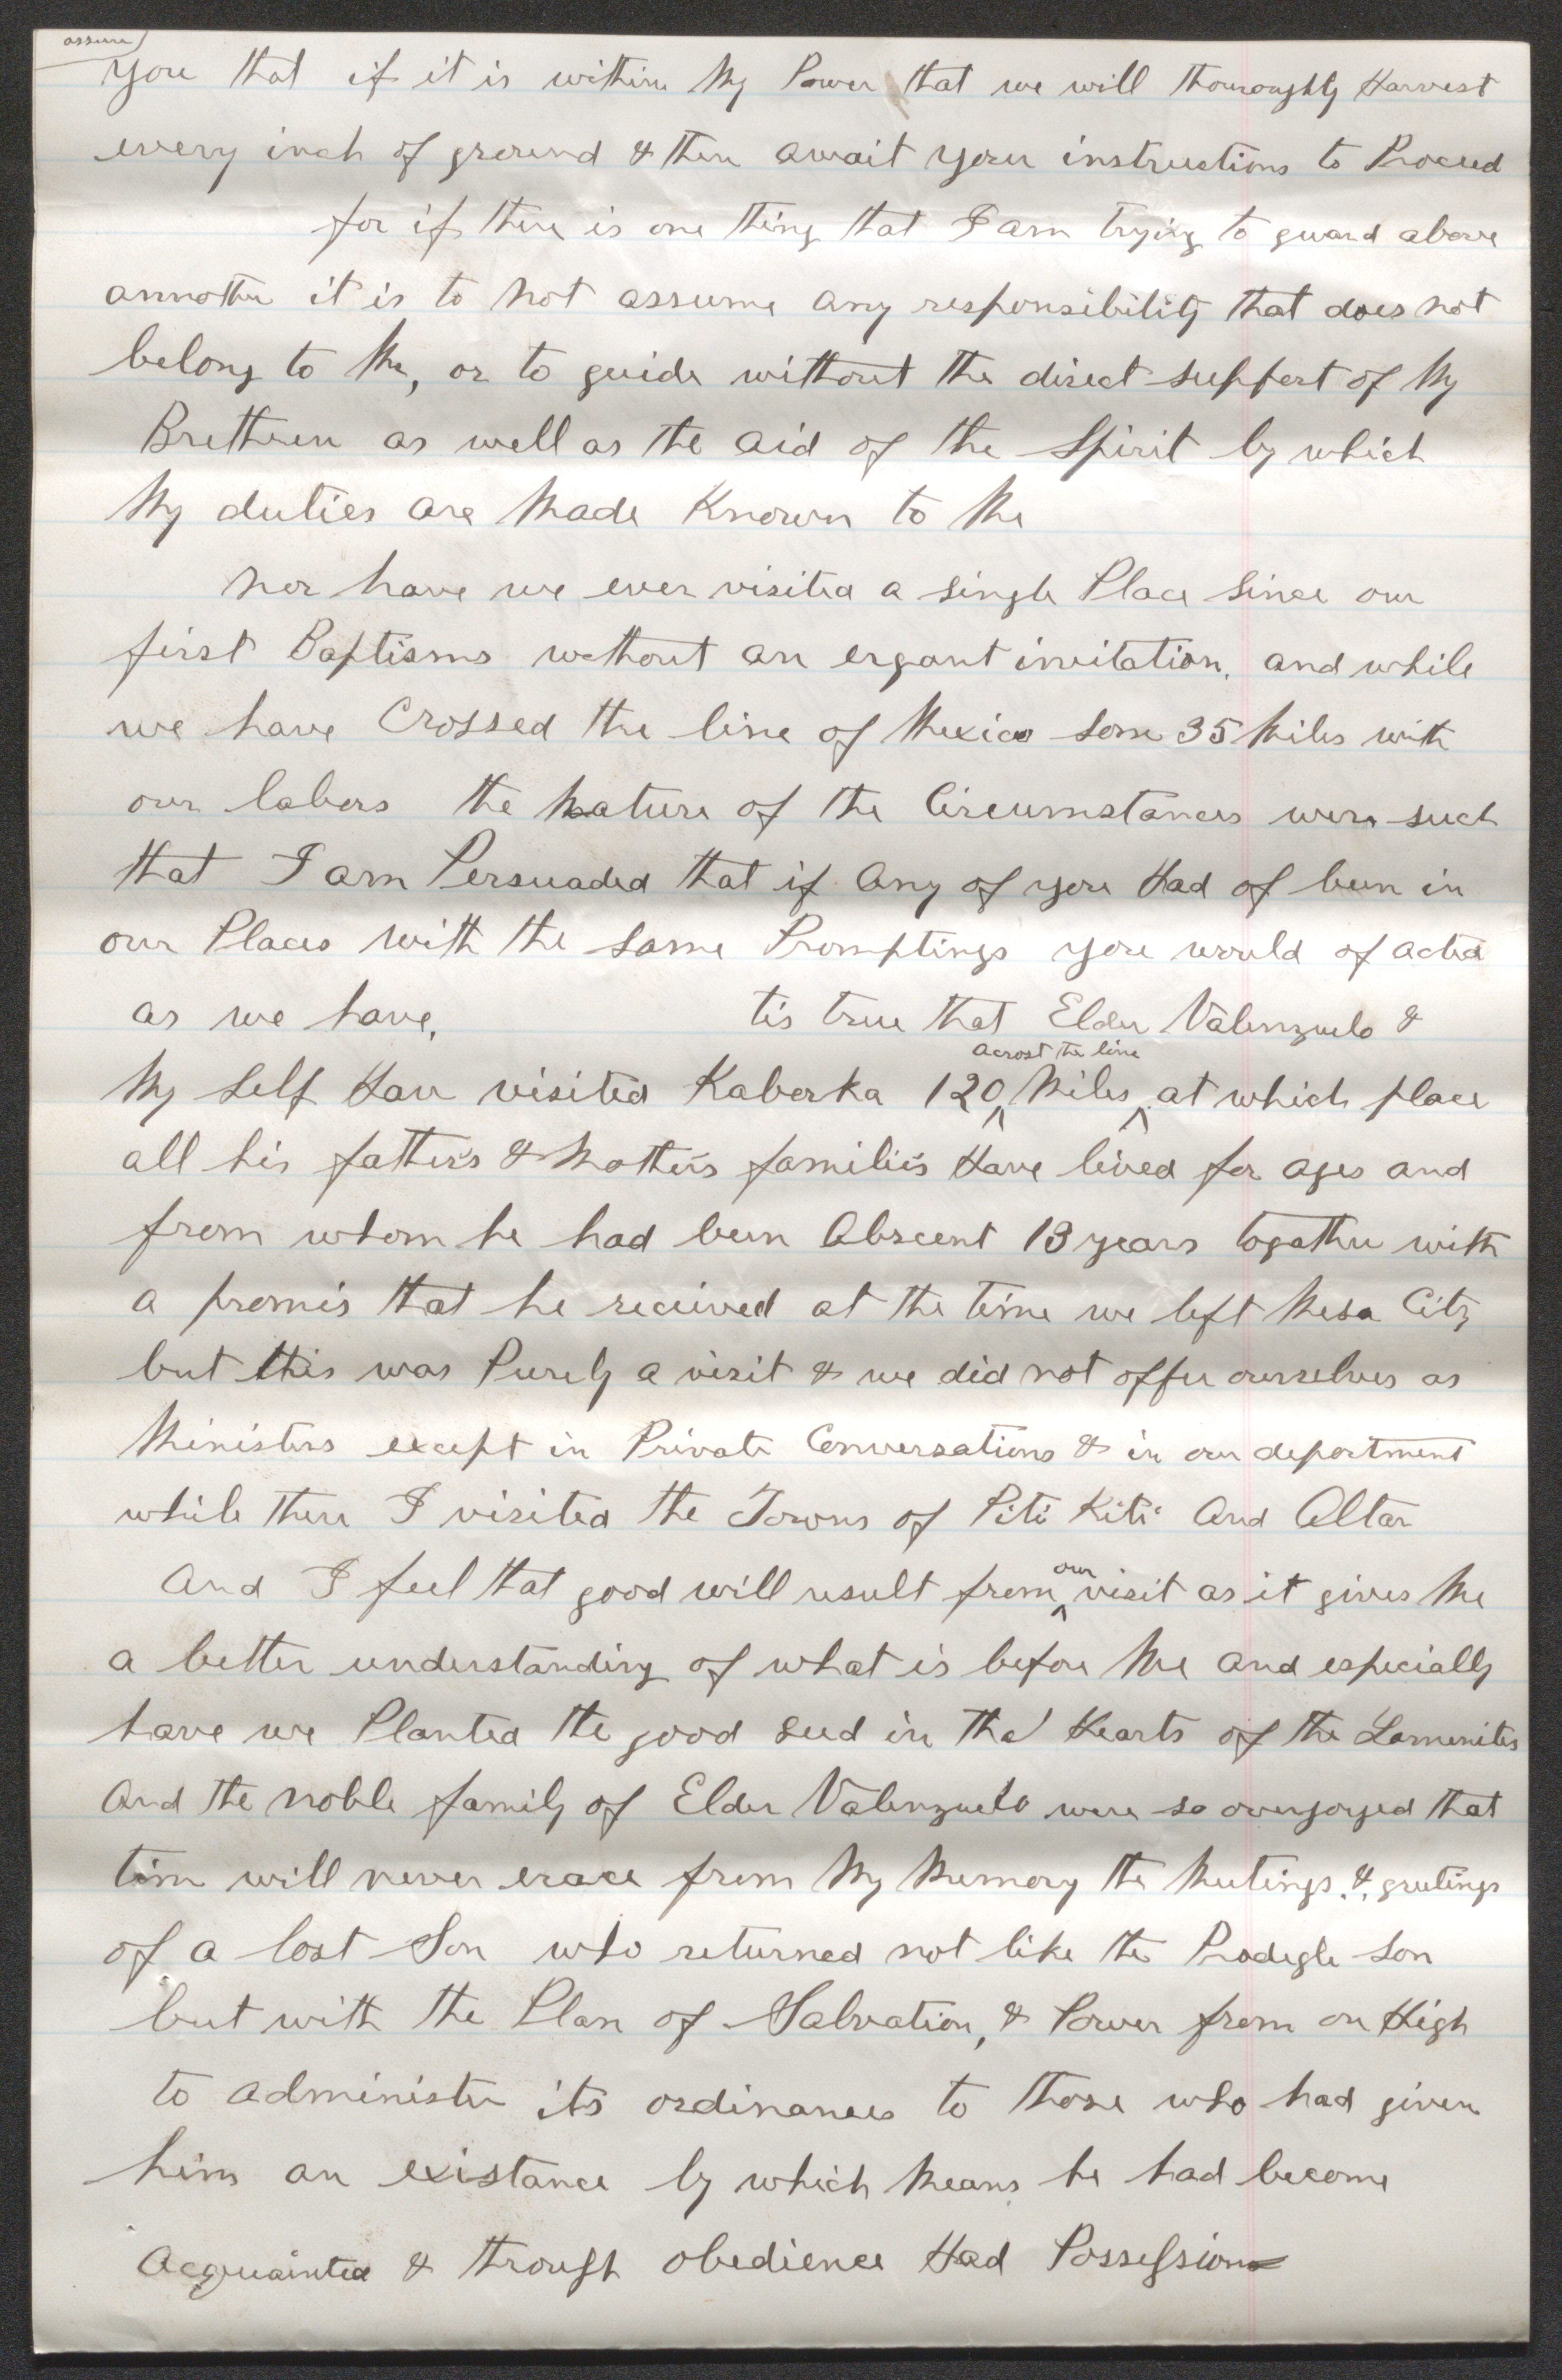 assure
you that if it is within My Power that we will thouroughly Harvest
every inch of ground & then await your instructions to Proceed
for if there is one thing that I am trying to guard above
annother it is to not assume any responsibility that does not
belong to Me, or to guide without the direct support of My
Brethren as well as the aid of the Spirit by which
My duties are Made Known to Me
nor have we ever visited a single Place since our
first Baptisms without an ergant invitation. and while
we have Crossed the line of Mexico some 35 Miles with
our labors the nature of the Circumstances were such
that I am Persuaded that if any of you Had of been in
our Places with the same Promptings you would of acted
as we have. tis true that Elder Valenzuelo &
across the line
My Self Have visited Kaborka 120 Miles at which place
all his father's & Mother's familie's Have lived for ages and
from whom he had been Abscent 13 years togather with
a promis that he recieved at the time we left Mesa City
but this was Purely a visit & we did not offer ourselves as
Ministers except in Private Conversations & in our deportment
while there I visited the Towns of Piti Kiti And Altar
our
And I feel that good will result from visit as it gives Me
a better understanding of what is before Me and especially
have we Planted the good seed in the Hearts of the Lamenites
and the noble family of Elder Valenzuelo were so overjoyed that
tim will never erace from My Memory the Meetings & greetings
of a lost Son who returned not like the Prodegle son
but with the Plan of Salvation, & Power from on High
to administer its ordinances to those who had given
him an existance by which Means he had become
Acquainted & through obedience Had Possession